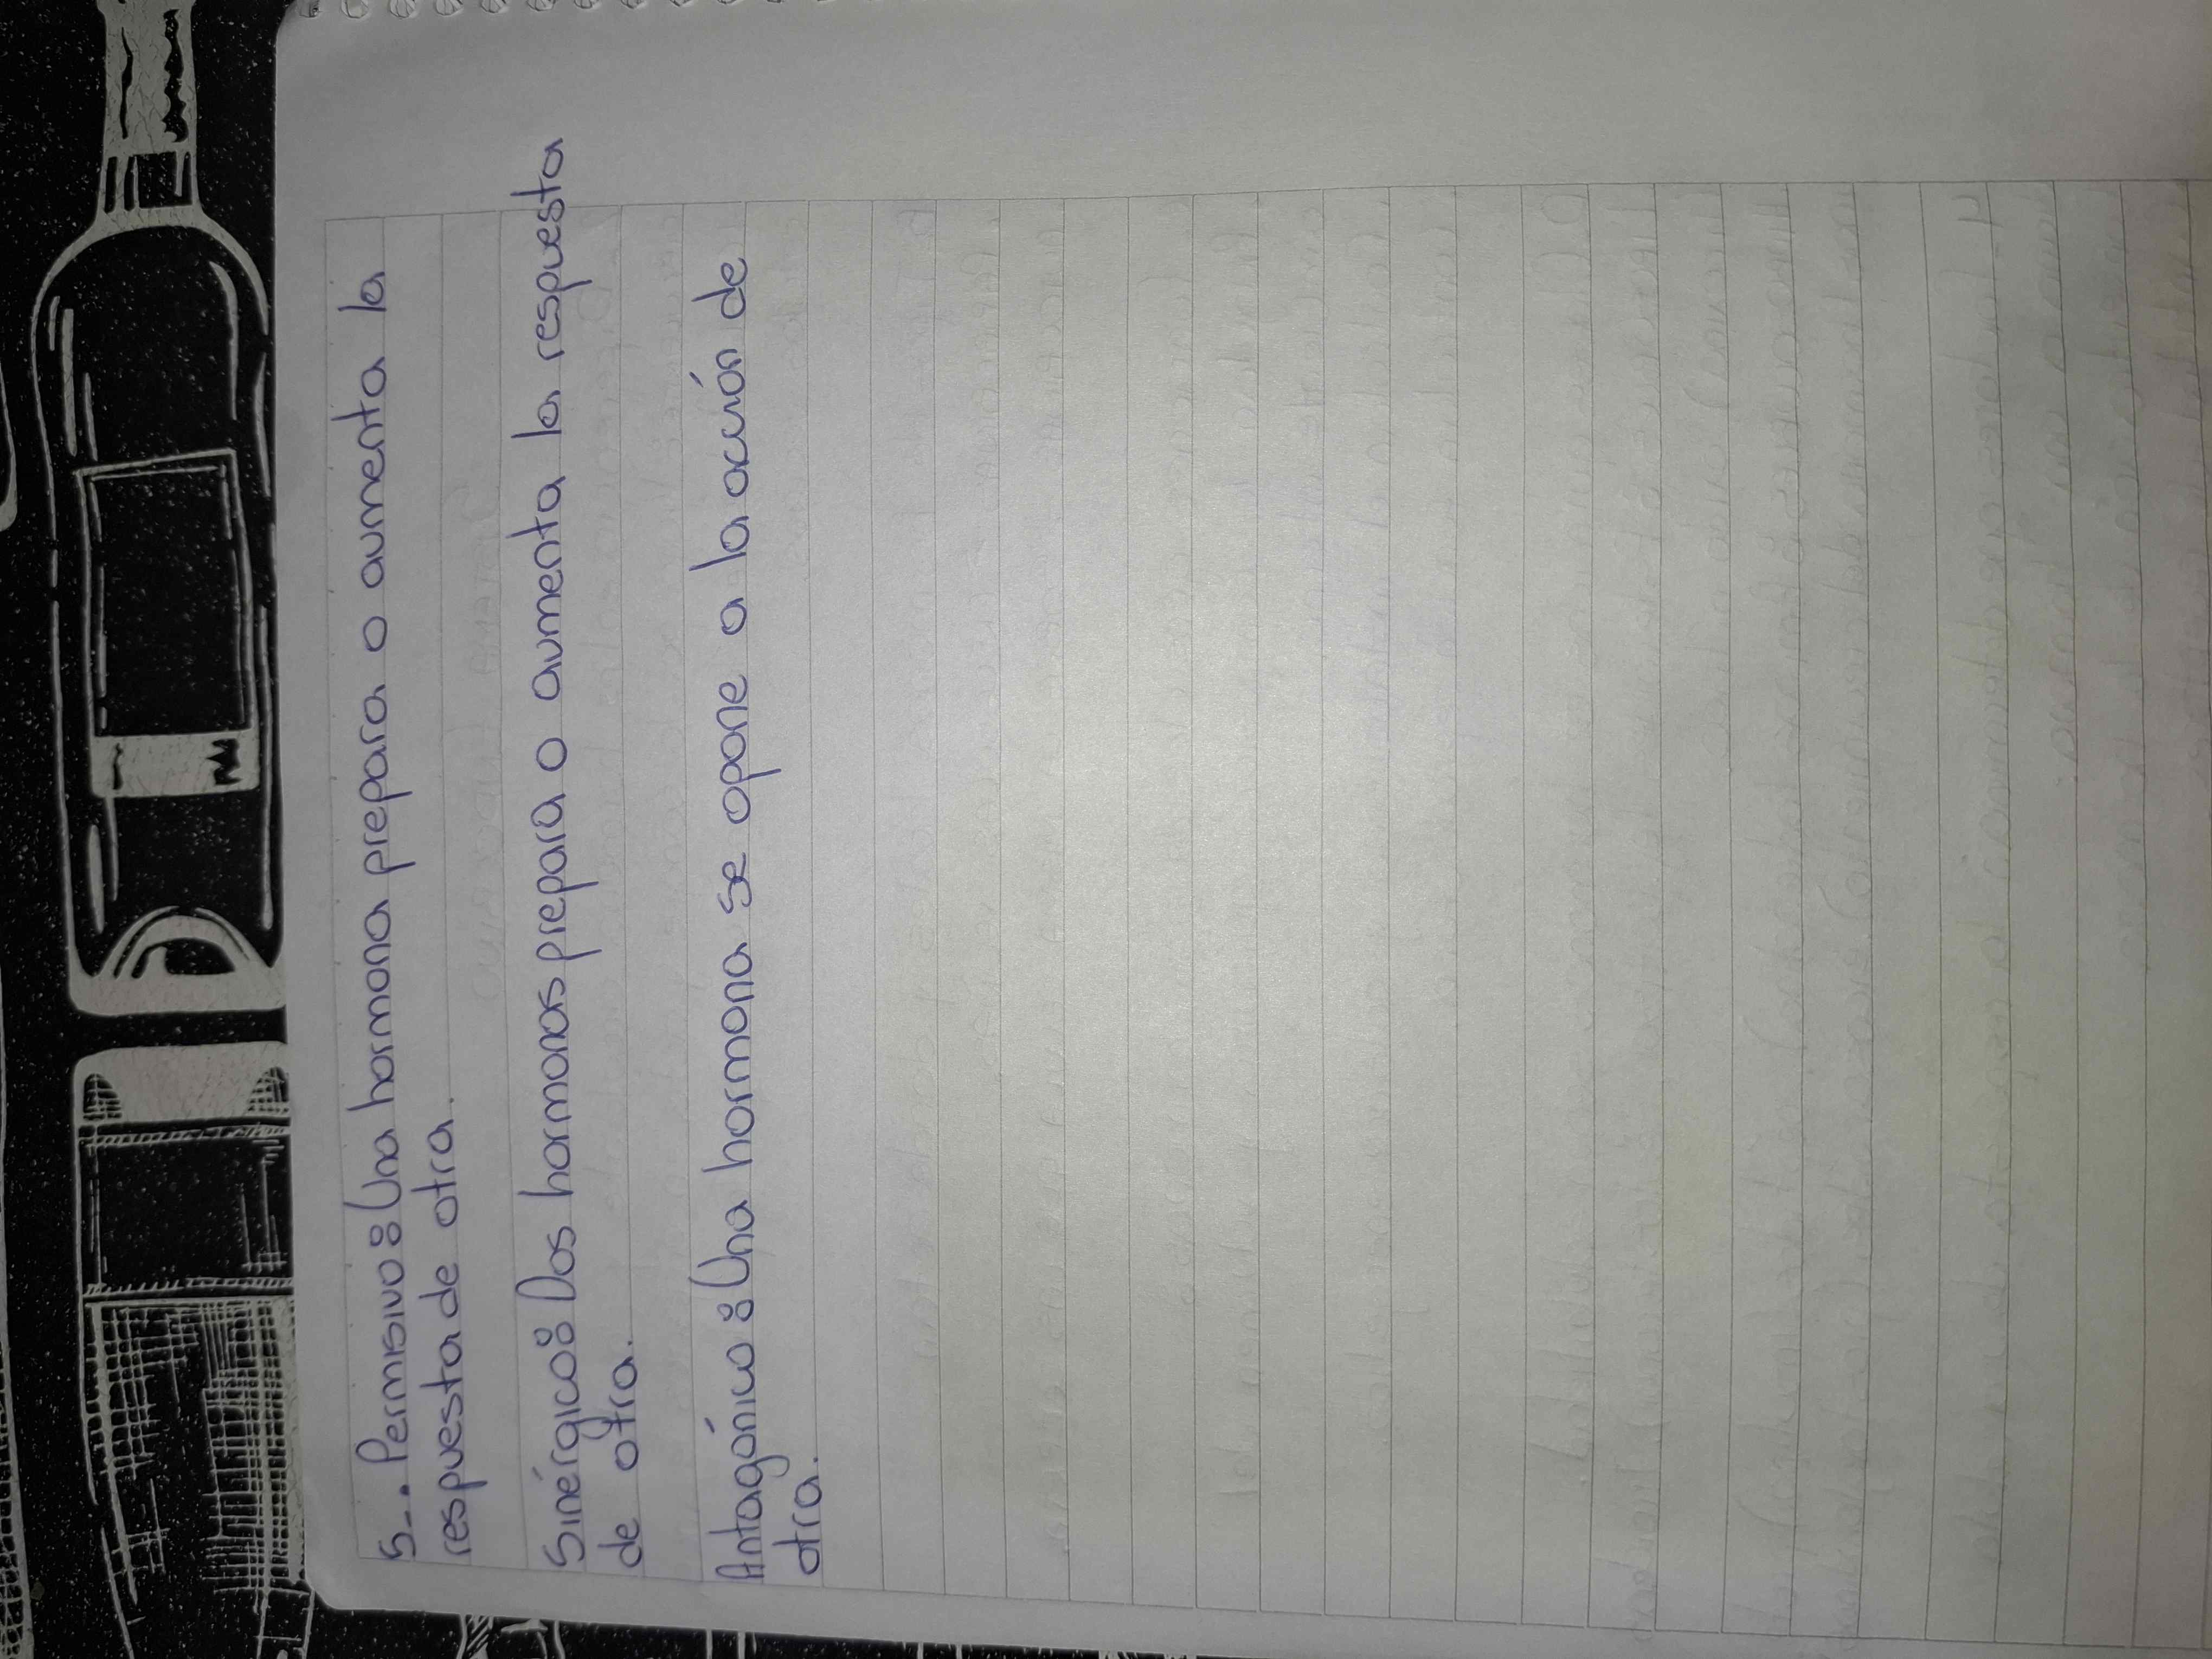 5-. Permisivo: Una hormona prepara o aumenta la
respuesta de otra.
Sinérgico: Dos hormonas prepara o aumenta la respuesta
de otra.
Antagónico: Una hormona se opone a la acción de
otra.